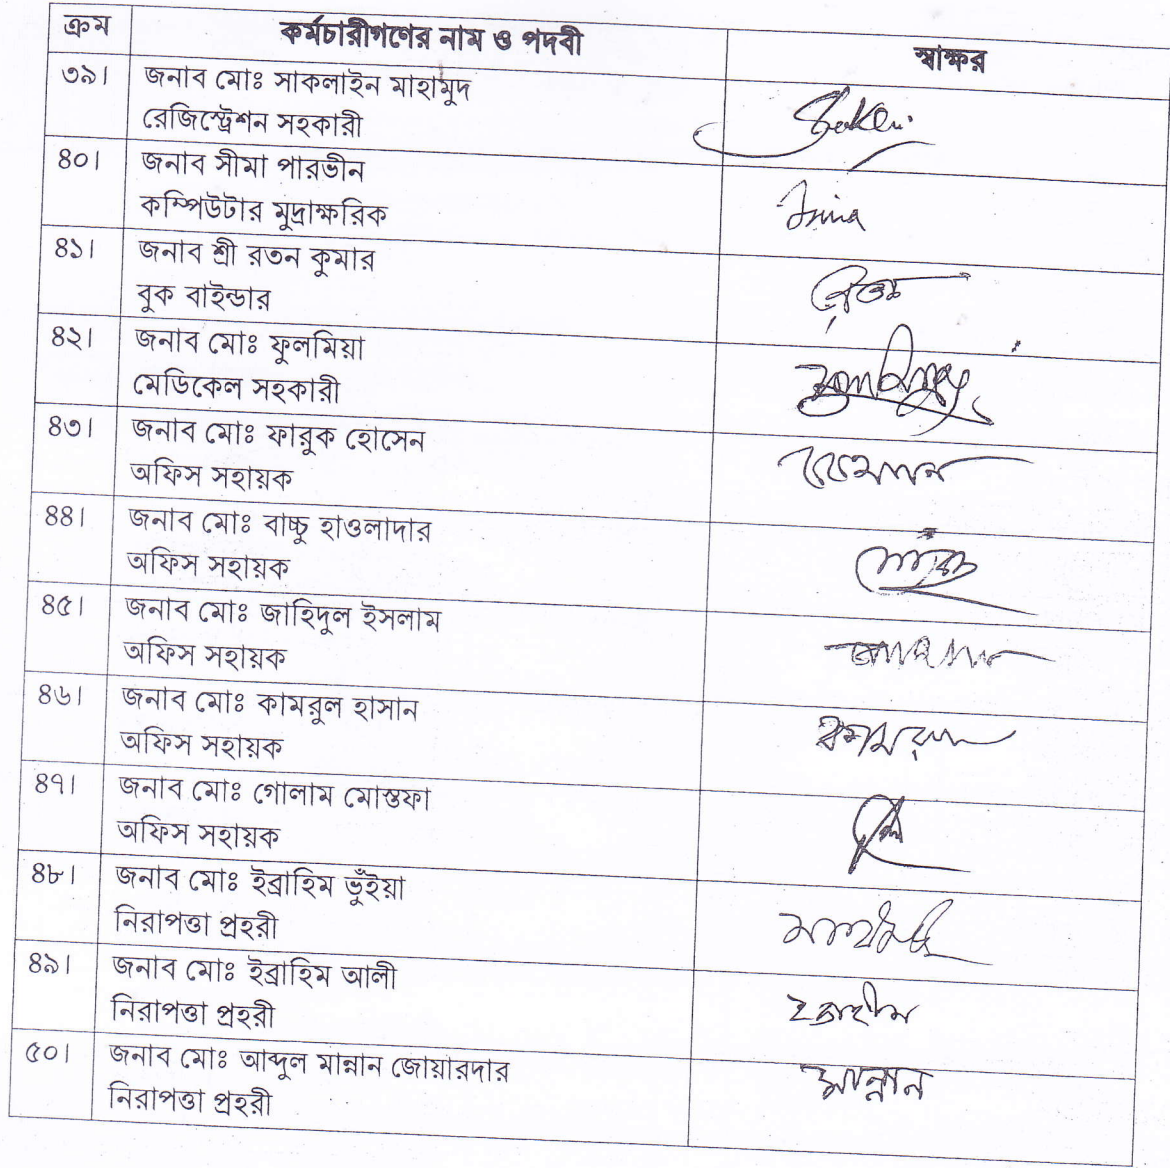 ক্রম কর্মচারীগণের নাম ও পদবী স্বাক্ষর
৩৯। জনাব মোঃ সাকলাইন মাহামুদ
রেজিস্ট্রেশন সহকারী
৪০। জনাব সীমা পারভীন
কম্পিউটার মুদ্রাক্ষরিক
৪১। জনাব শ্রী রতন কুমার
বুক বাইন্ডার
৪২। জনাব মোঃ ফুলমিয়া
মেডিকেল সহকারী
৪৩। জনাব মোঃ ফারুক হোসেন
অফিস সহায়ক
৪৪। জনাব মোঃ বাচ্চু হাওলাদার
অফিস সহায়ক
৪৫। জনাব মোঃ জাহিদুল ইসলাম
অফিস সহায়ক
৪৬। জনাব মোঃ কামরুল হাসান
অফিস সহায়ক
৪৭। জনাব মোঃ গোলাম মোস্তফা
অফিস সহায়ক
৪৮। জনাব মোঃ ইব্রাহিম ভুঁইয়া
নিরাপত্তা প্রহরী
৪৯। জনাব মোঃ ইব্রাহিম আলী
নিরাপত্তা প্রহরী
৫০। জনাব মোঃ আব্দুল মান্নান জোয়ারদার মান্নান
নিরাপত্তা প্রহরী